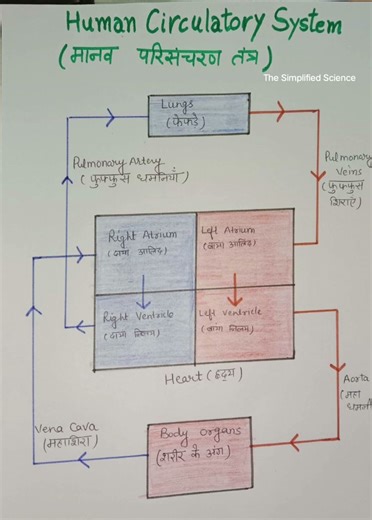 Human Circulatory System
(मानव परिसंचरण तंत्र)
The Simplified Science
Lungs
(फेफड़े)
Pulmonary Artery
(फुफ्फुस धमनियाँ)
Pulmonary
Veins
(फुफ्फुस
शिराएं)
Right Atrium
(दायां आलिंद)
Left Atrium
(बायां आलिंद)
Right Ventricle
(दायां निलय)
Left Ventricle
(बायां निलय)
Heart (हृदय)
Aorta
(महा
धमनी
Vena Cava
(महाशिरा)
Body Organs
(शरीर के अंग)